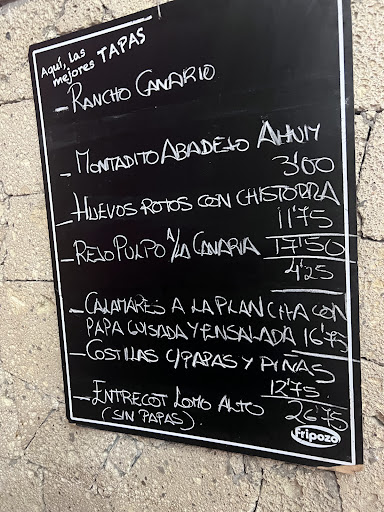 Aquí, las
mejores TAPAS
- RANCHO CANARIO
- MONTADITO ABADEJO AHUM
3'00
- HUEVOS ROTOS CON CHISTORRA
11'75
- REJO PULPO A/LA CANARIA 17'50
4'25
- CALAMARES A LA PLANCHA CON
PAPA GUISADA Y ENSALADA 16'75
- COSTILLAS C/PAPAS Y PIÑAS
12'75
- ENTRECOT LOMO ALTO
(SIN PAPAS) 26'75
Fripozo